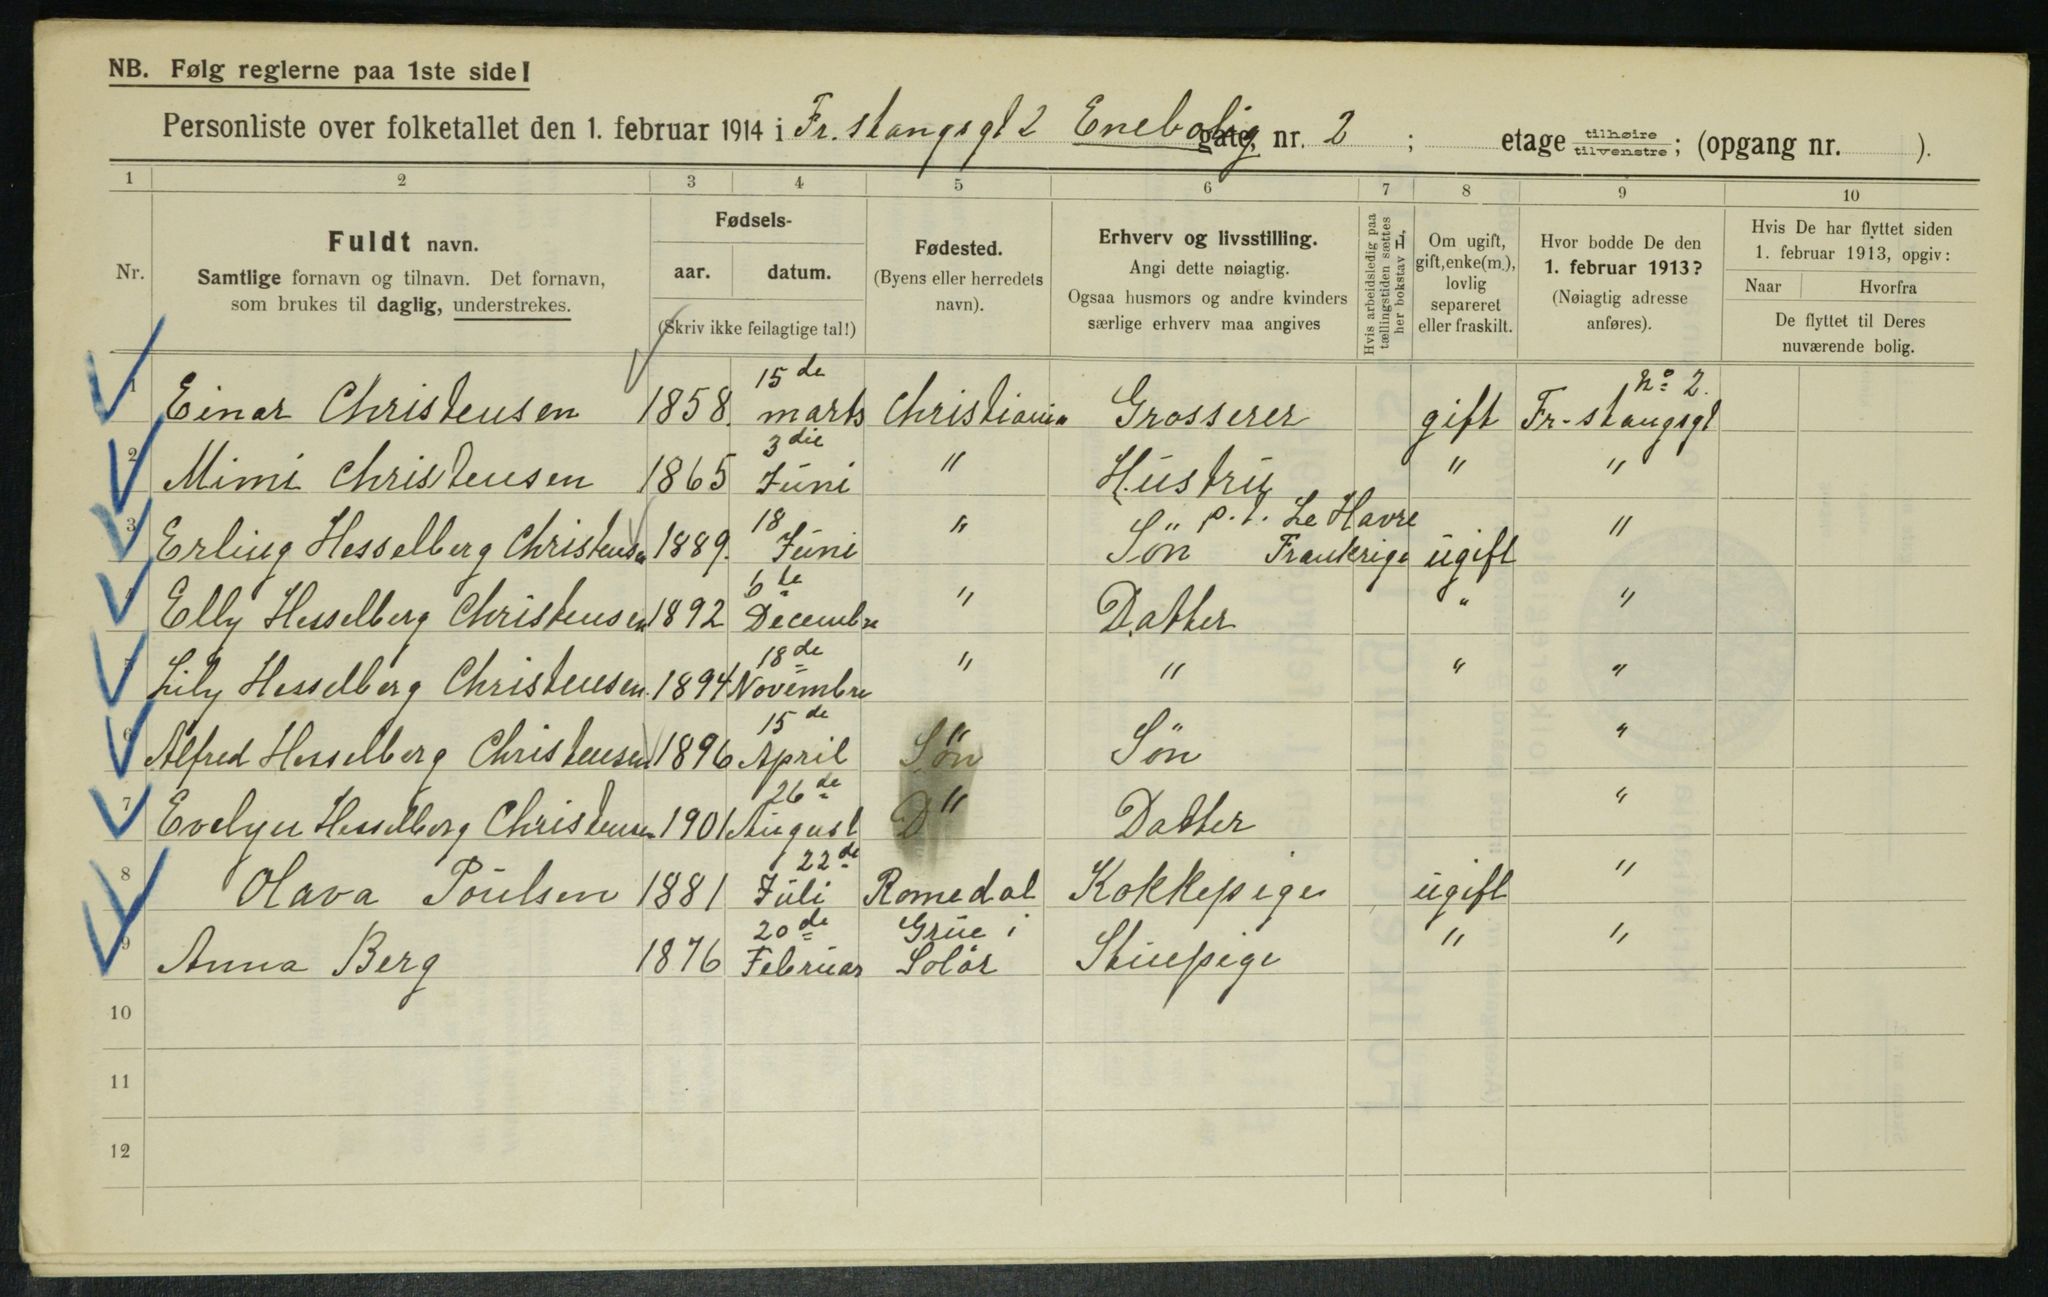 NB. Følg reglerne paa 1ste side!
Personliste over folketallet den 1. februar 1914 i Fr. stangsgt 2 Enebolig gate, nr. 2 ; etage tilhøire tilvenstre ; (opgang nr. ).
1 2 3 4 5 6 7 8 9 10
Nr.
Fuldt navn.
Samtlige fornavn og tilnavn. Det fornavn,
som brukes til daglig, understrekes.
Fødsels-
aar. datum.
(Skriv ikke feilagtige tal!)
Fødested.
(Byens eller herredets
navn).
Erhverv og livsstilling.
Angi dette nøiagtig.
Ogsaa husmors og andre kvinders
særlige erhverv maa angives
Hvis arbeidsledig paa
tællingstiden sættes
her bokstav L.
Om ugift,
gift, enke(m.),
lovlig
separeret
eller fraskilt.
Hvor bodde De den
1. februar 1913?
(Nøiagtig adresse
anføres).
Hvis De har flyttet siden
1. februar 1913, opgiv:
Naar Hvorfra
De flyttet til Deres
nuværende bolig.
1 Einar Christensen 1858. 15de marts Christiania Grosserer gift Fr-stangsgt No 2.
2 Mimi Christensen 1865 3die Juni " Hustru " "
3 Erling Hesselberg Christensen 1889. 18 Juni " Søn p.t. Le Havre Frankrige ugift "
4 Elly Hesselberg Christensen 1892 6te Decembre " Datter " "
5 Lily Hesselberg Christensen. 1894 18de Novembre " " " "
6 Alfred Hesselberg Christensen 1896 15de April Søn " Søn "
7 Evelyn Hesselberg Christensen 1901 26de August D " Datter "
8 Olava Poulsen 1881 22de Juli Romedal Kokkepige ugift "
9 Anna Berg 1876 20de Februar Grue i Solør Stuepige " "
10
11
12